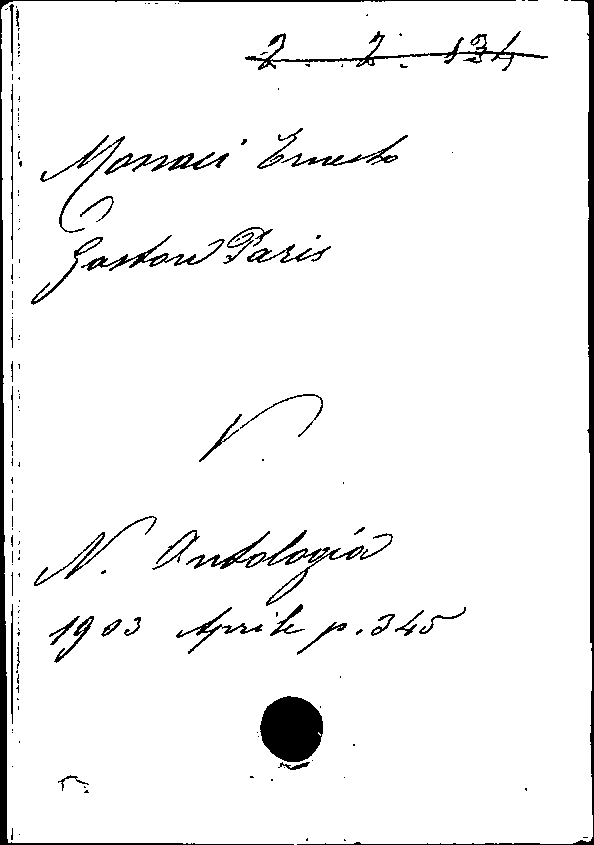 2. 2. 134
Monaci Ernesto
Gaston Paris
V.
N. Antologia
1903 Aprile p. 345